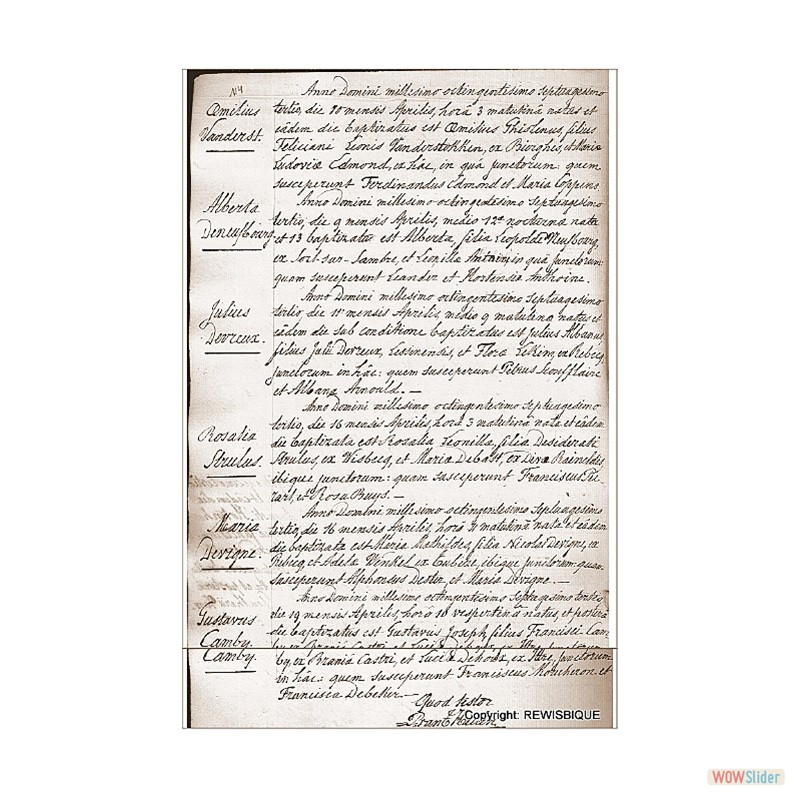 N4
Anno Domini millesimo octingentesimo septuagesimo
Œmilius
tertio, die 10 mensis Aprilis, horâ 3 matutinâ natus et
Vanderst.
eâdem die baptizatus est Œmilius Ghislenus, filius
Feliciani Leonis Vanderstokken, ex Bierghes, et Mariæ
Ludovicæ Edmond, ex hâc, in quâ junctorum: quem
susceperunt Ferdinandus Edmond et Maria Coppens.
Anno Domini millesimo octingentesimo septuagesimo
Alberta
Deneufbourg
tertio, die 9 mensis Aprilis, medio 12æ nocturna nata
et 13 baptizata est Alberta, filia Leopoldi Neufbourg,
ex Sart-sur-Sambre, et Leonilla Anthoine in quâ junctorum:
quam susceperunt Leander et Hortensia Anthoine.
Anno Domini millesimo octingentesimo septuagesimo
Julius
Devreux.
tertio, die 11 mensis Aprilis, medio 9 matutina natus et
eâdem die sub conditione baptizatus est Julius Albanus
filius Julii Devreux, Lessinensis, et Flora Lekens, ex Rebecq
junctorum in hâc: quem susceperunt
et Albana Arnould. —
Anno Domini millesimo octingentesimo septuagesimo
Rosalia
Strulus.
tertio, die 16 mensis Aprilis, horâ 3 matutinâ nata et eâdem
die baptizata est Rosalia Leonilla, filia Desiderati
Strulus, ex Wisbecq, et Maria Debast, ex Diva Raineldes
ibique junctorum: quam susceperunt Franciscus
et Rosa Buys. —
Anno Domini millesimo octingentesimo septuagesimo
Maria
Devigne.
tertio, die 16 mensis Aprilis, horâ 9 matutinâ nata et eâdem
die baptizata est Maria Mathildes, filia Nicolai Devigne, ex
Rebecq, et Adela Wenkel ex Eubece, ibique junctorum: quam
susceperunt Alphonsus Dester, et Maria Devigne. —
Anno Domini millesimo octingentesimo septuagesimo tertio,
Gustavus
Camby.
die 19 mensis Aprilis, horâ 10 vespertinâ natus, et posterâ
die baptizatus est Gustavus Joseph, filius Francisci Cam
Camby.
by, ex Braniâ Castri, et Lucia Dehoux, ex Ittre, junctorum
in hâc: quem susceperunt Franciscus Morcheron et
Francisca Debekker. —
Quod testor
Copyright: REWISBIQUE
WOWSlider